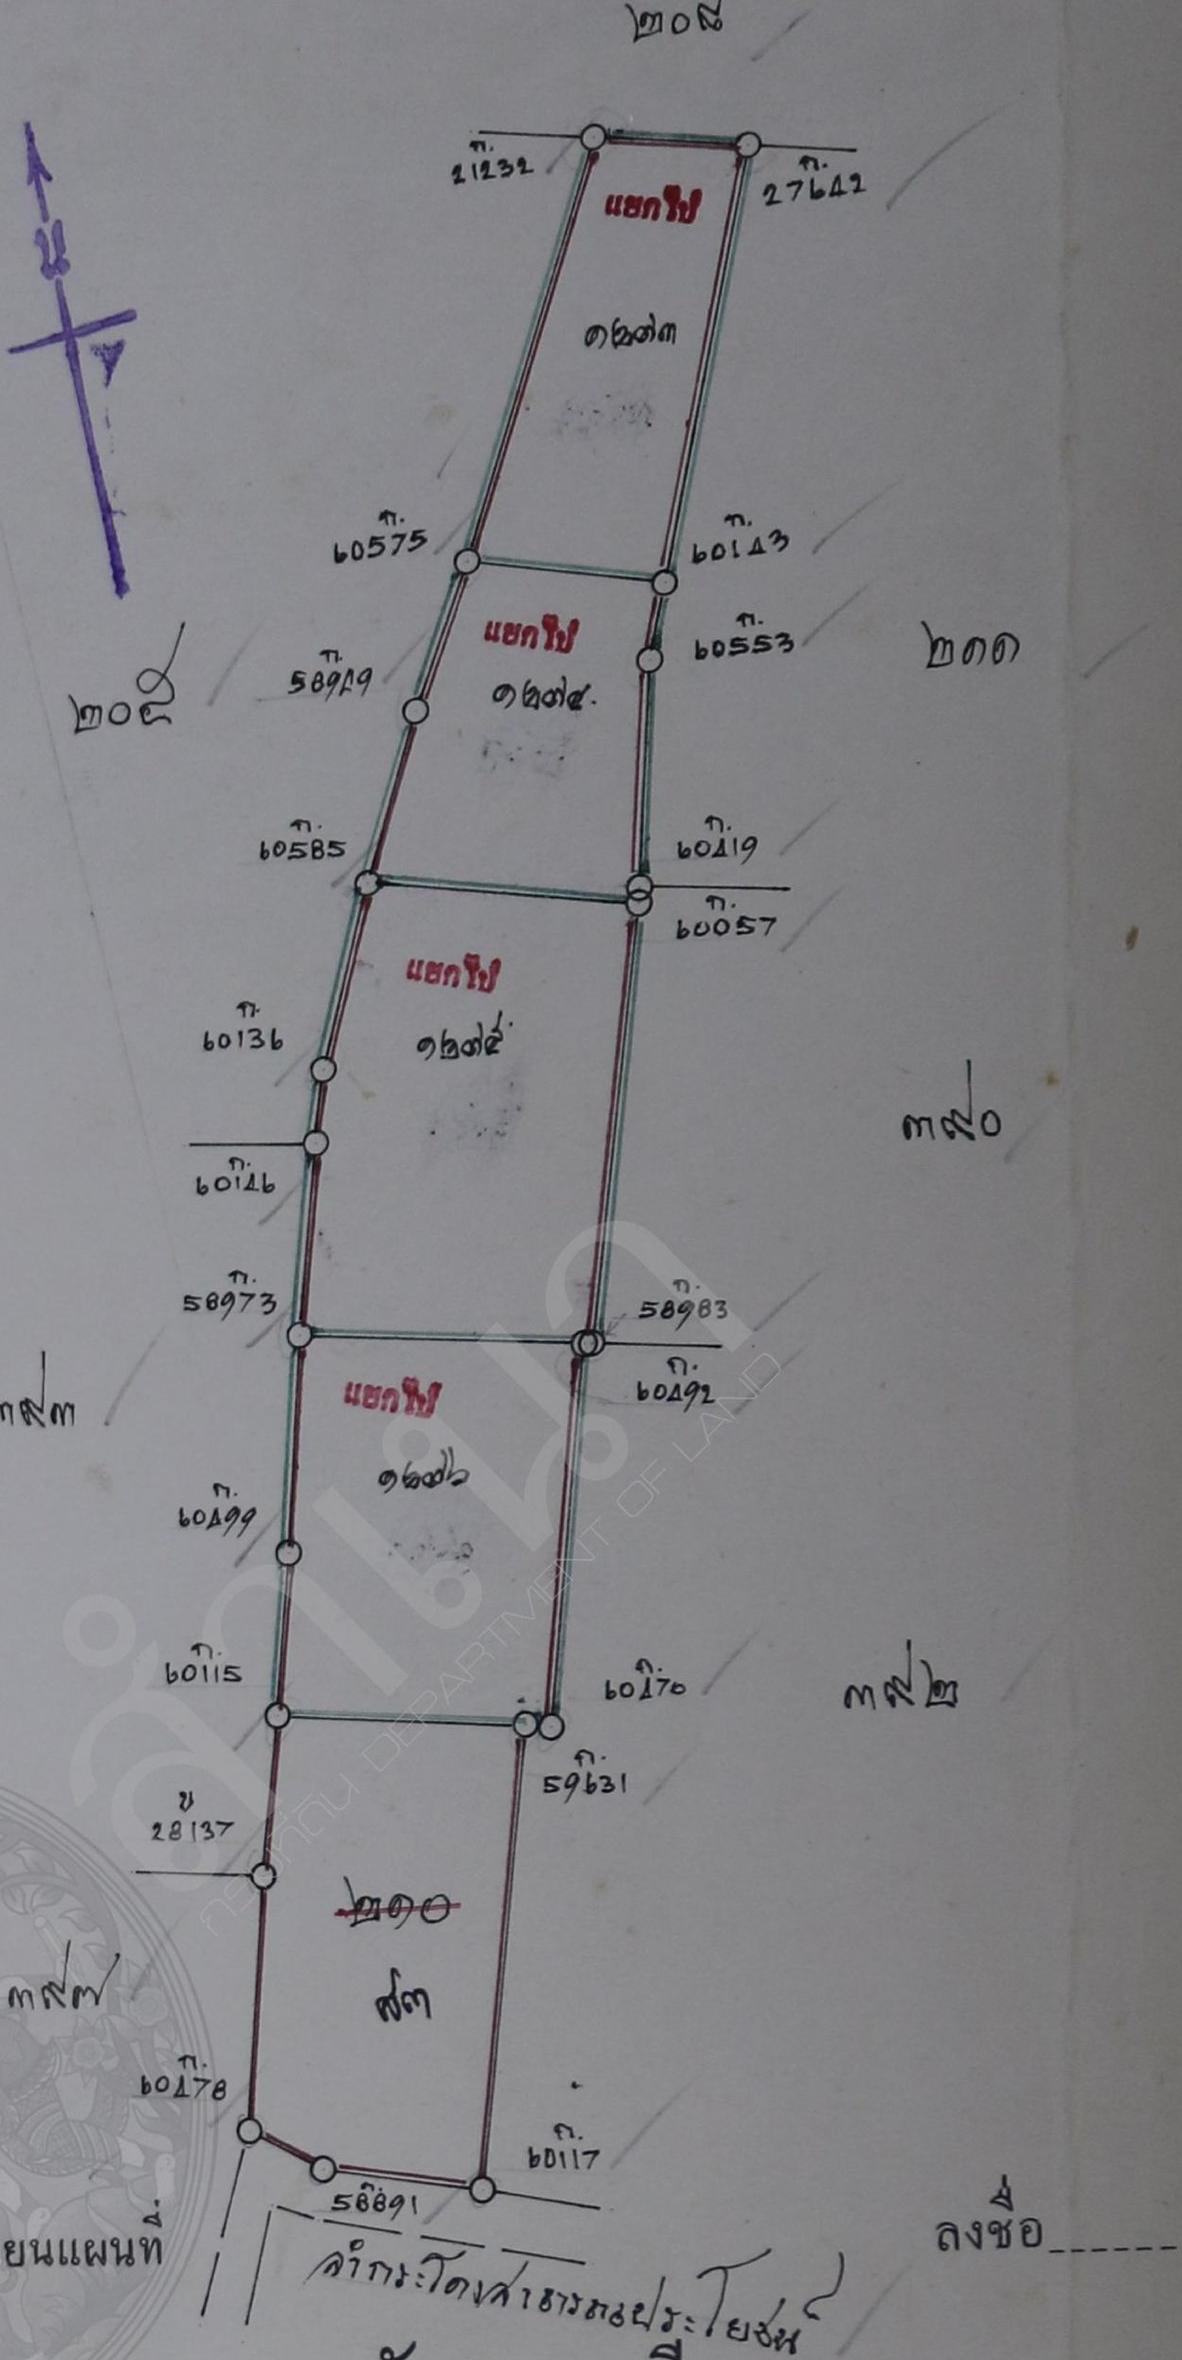 ๒๐๘
ก.
21232
ก.
27642
แยกไป
๑๒๗๓
น
ก.
60575
ก.
60143
แยกไป
ก.
60553
๒๑๑
ก.
58949
๑๒๗๔
๒๐๕
ก.
60585
ก.
60419
ก.
60057
แยกไป
๑๒๗๕
ก.
60136
๓๙๐
ก.
60146
ก.
58973
ก.
58983
ก.
60492
แยกไป
๓๙๓
๑๒๗๖
ก.
60499
ก.
60115
ก.
60470
๓๙๒
ก.
59631
ข
28137
๒๑๐
๘๓
๓๙๗
ก.
60478
ก.
60117
ก.
58891
ยนแผนที่
ลงชื่อ
ลำกระโดงสาธารณประโยชน์
สำเนา
กรมที่ดิน DEPARTMENT OF LAND